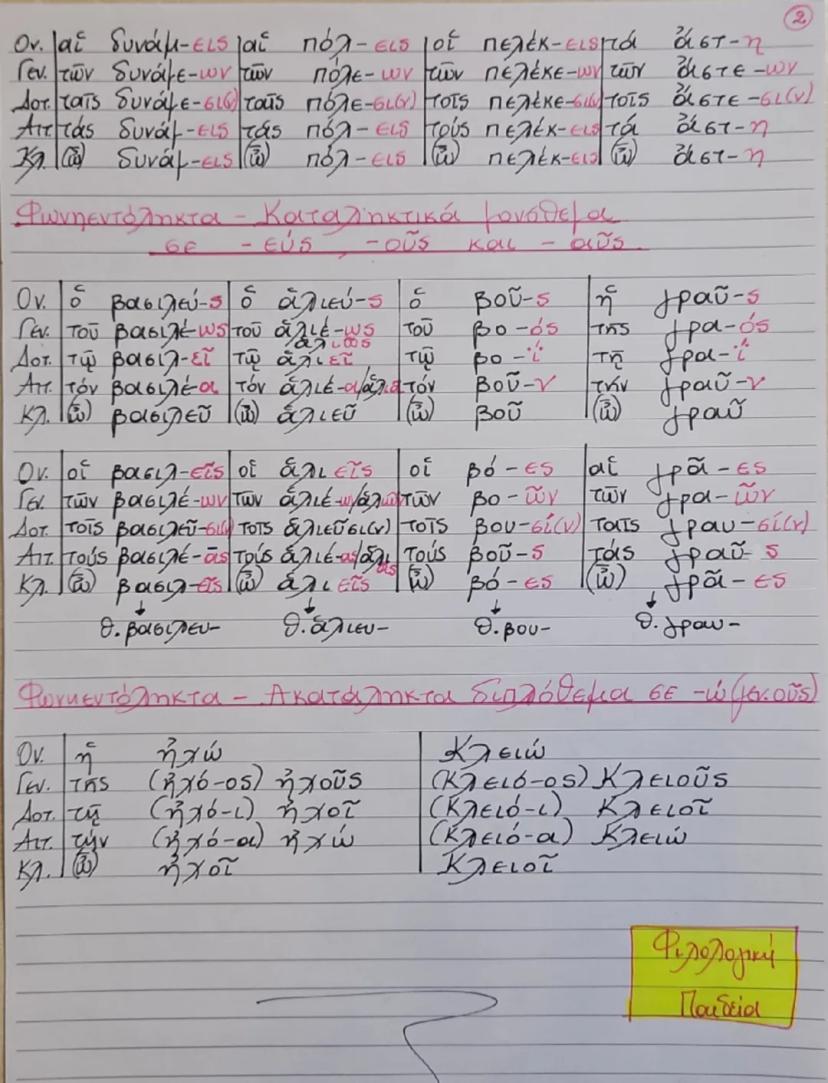 2
Ον. αἱ δυνάμ-εις αἱ πόλ-εις οἱ πελέκ-εις τά ἄστ-η
Γεν. τῶν δυνάμε-ων τῶν πόλε-ων τῶν πελέκε-ων τῶν ἄστε-ων
Δοτ. ταῖς δυνάμε-σι(ν) ταῖς πόλε-σι(ν) τοῖς πελέκε-σι(ν) τοῖς ἄστε-σι(ν)
Αιτ. τάς δυνάμ-εις τάς πόλ-εις τούς πελέκ-εις τά ἄστ-η
Κλ. (ὦ) δυνάμ-εις (ὦ) πόλ-εις (ὦ) πελέκ-εις (ὦ) ἄστ-η
Φωνηεντόληκτα - Καταληκτικά μονόθεμα
σε -εύς, -οῦς και -αῦς
Ον. ὁ βασιλεύ-ς ὁ ἁλιεύ-ς ὁ βοῦ-ς ἡ γραῦ-ς
Γεν. τοῦ βασιλέ-ως τοῦ ἁλιέ-ως τοῦ βο-ός της γρα-ός
ἁλιῶς
Δοτ. τῷ βασιλ-εῖ τῷ ἁλιεῖ τῷ βο-ΐ τῇ γρα-ΐ
Αιτ. τόν βασιλέ-α τόν ἁλιέ-α/ἁλιᾶ τόν βοῦ-ν την γραῦ-ν
Κλ. (ὦ) βασιλεῦ (ὦ) ἁλιεῦ (ὦ) βοῦ (ὦ) γραῦ
Ον. οἱ βασιλ-εῖς οἱ ἁλιεῖς οἱ βό-ες αἱ γρᾶ-ες
Γεν. τῶν βασιλέ-ων των ἁλιέ-ων/ἁλιῶν τῶν βο-ῶν τῶν γρα-ῶν
Δοτ. τοῖς βασιλεῦ-σι(ν) τοῖς ἁλιεῦσι(ν) τοῖς βου-σί(ν) ταῖς γραυ-σί(ν)
Αιτ. τούς βασιλέ-ᾱς τούς ἁλιέ-ας/ἁλιᾶς τούς βοῦ-ς τάς γραῦ-ς
Κλ. (ὦ) βασιλ-εῖς (ὦ) ἁλιεῖς (ὦ) βό-ες (ὦ) γρᾶ-ες
θ. βασιλευ- θ. ἁλιευ- θ. βου- θ. γραυ-
Φωνηεντόληκτα - Ακατάληκτα διπλόθεμα σε -ώ (γεν. οῦς)
Ον. ἡ ἠχώ Κλειώ
Γεν. της (ἠχό-ος) ἠχοῦς (Κλειό-ος) Κλειοῦς
Δοτ. τῇ (ἠχό-ι) ἠχοῖ (Κλειό-ι) Κλειοῖ
Αιτ. τήν (ἠχό-α) ἠχώ (Κλειό-α) Κλειώ
Κλ. (ὦ) ἠχοῖ Κλειοῖ
Φιλολογική
Παιδεία